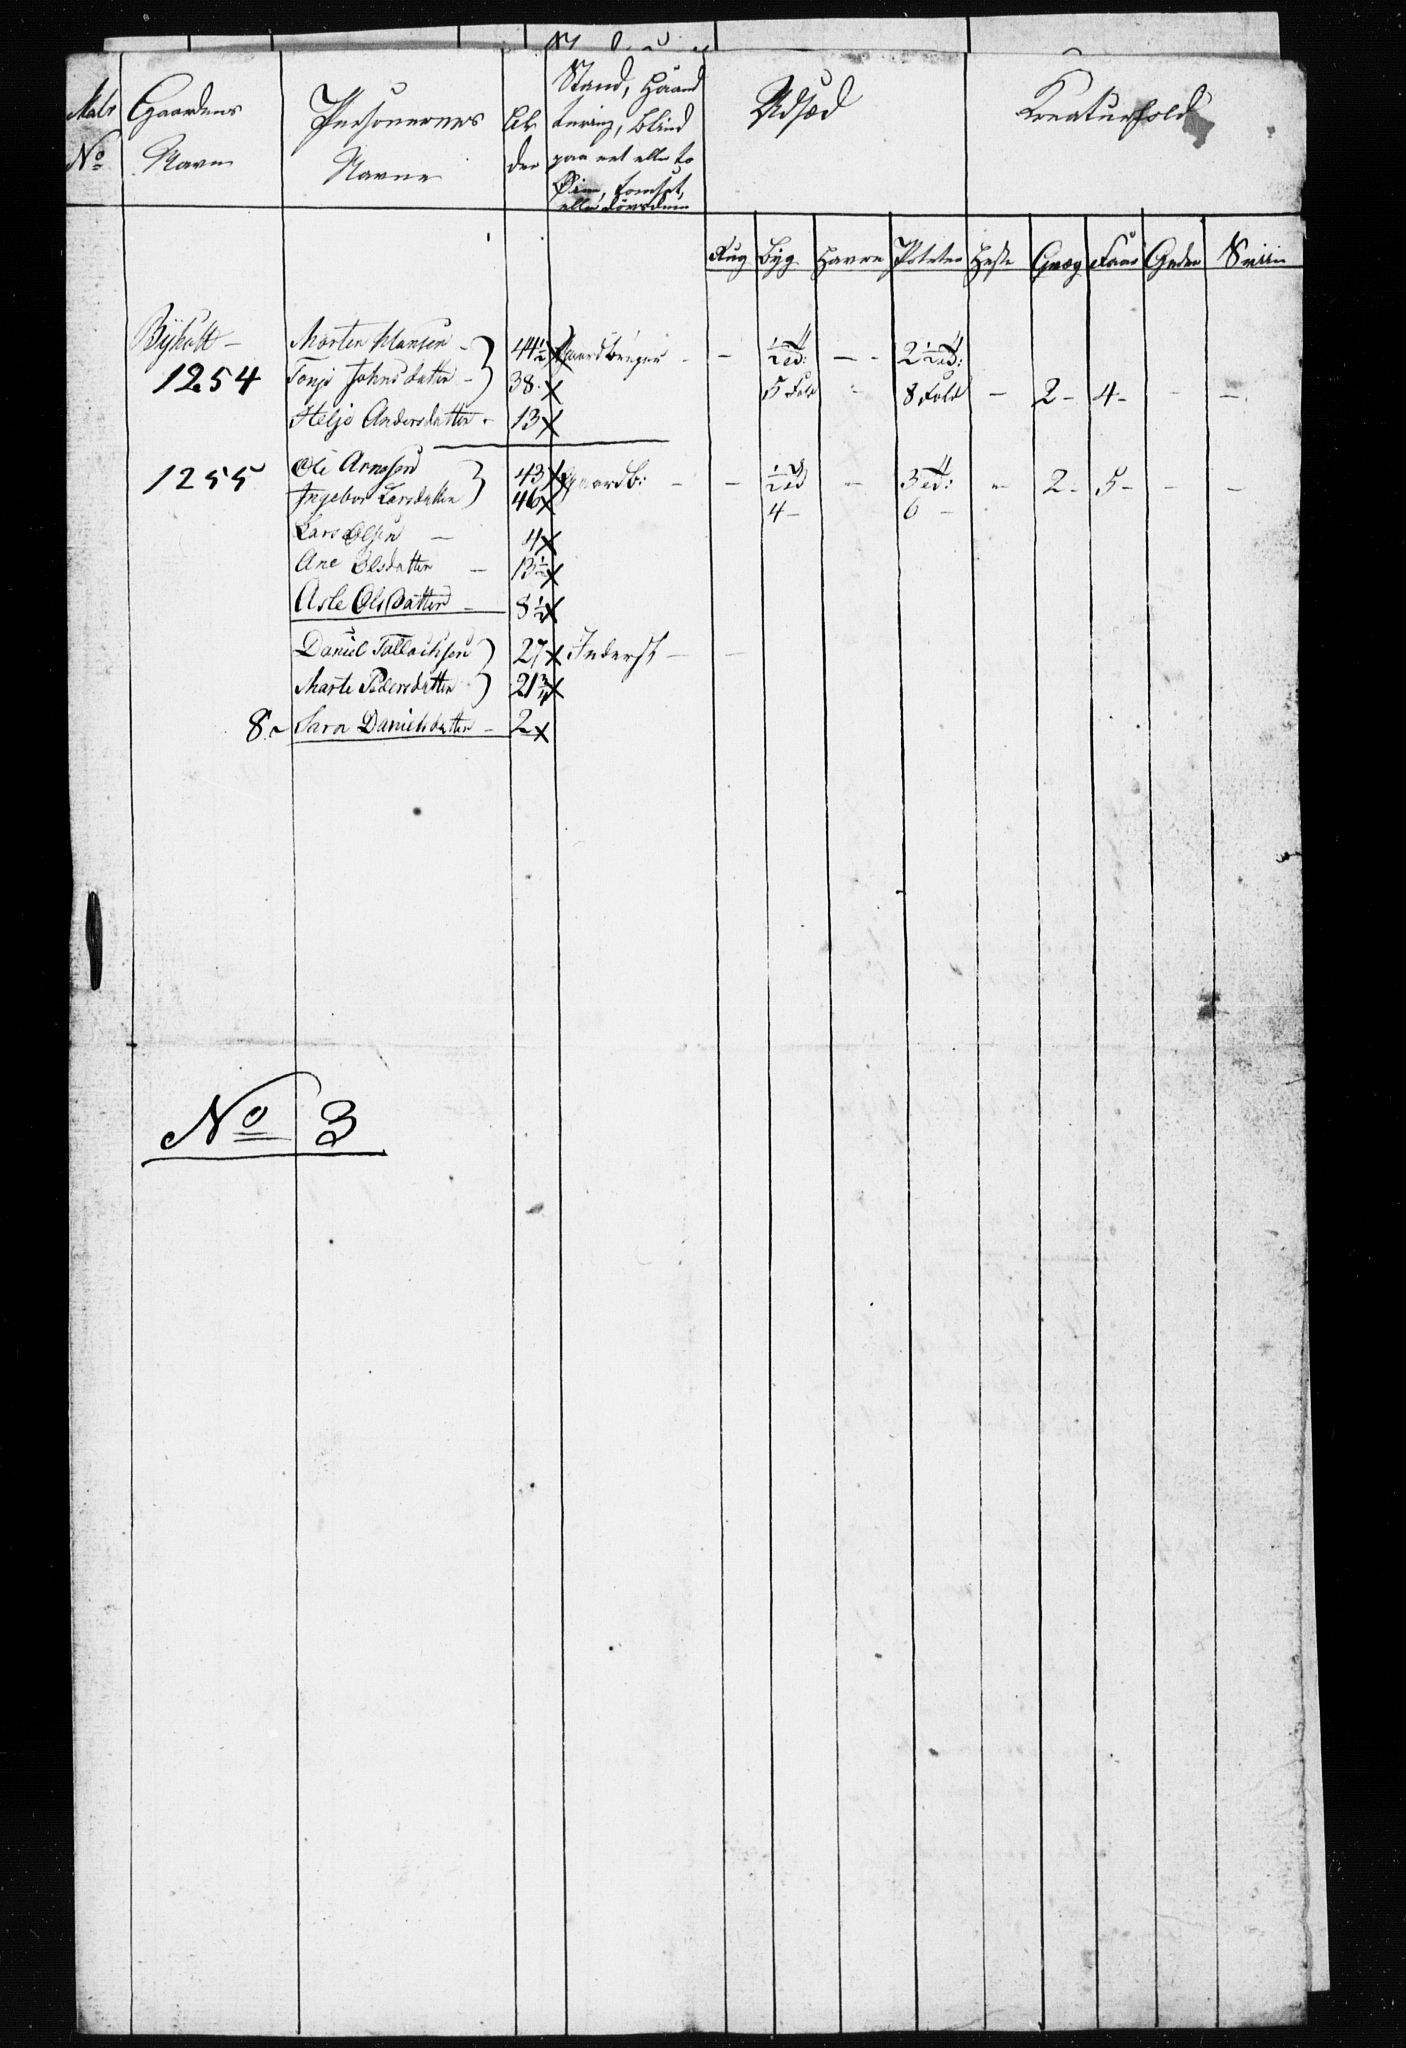 Matr No | Gaardens Navn | Personernes Navne | Al der | Stand, Haand tering, blind paa eet eller to Øine, tomset, eller døvstum | Udsæd | Kreaturhold
Rug | Byg | Havre | Poteter | Heste | Qvæg | Faar | Geder | Sviin
Byholt - | Morten Hansen - | 44½ x | Gaardbruger - | - | ½ Td: | - - | 2½ Td:
1254 | Tonje Johnsdatter - | 38 - x | 5 Fold | - | 8 Fold | - | 2 - | 4 - | - | -
Helje Andersdatter - | 13 x
1255 | Ole Arnesen | 43 x | Gaardb: - | - | ½ Td | - | 3 Td: | - | 2 - | 5 - | - | -
Ingebor Larsdatter | 46 x | 4 - | 6 -
Lars Olsen - | 4 x
Ane Olsdatter - | 13½ x
Asle Olsdatter - | 8½ x
Daniel Tallachsen | 27 x | Inderst - | -
Marte Pedersdatter | 21¾ x
8 ~ | Sara Danielsdatter - | 2 x
No 3